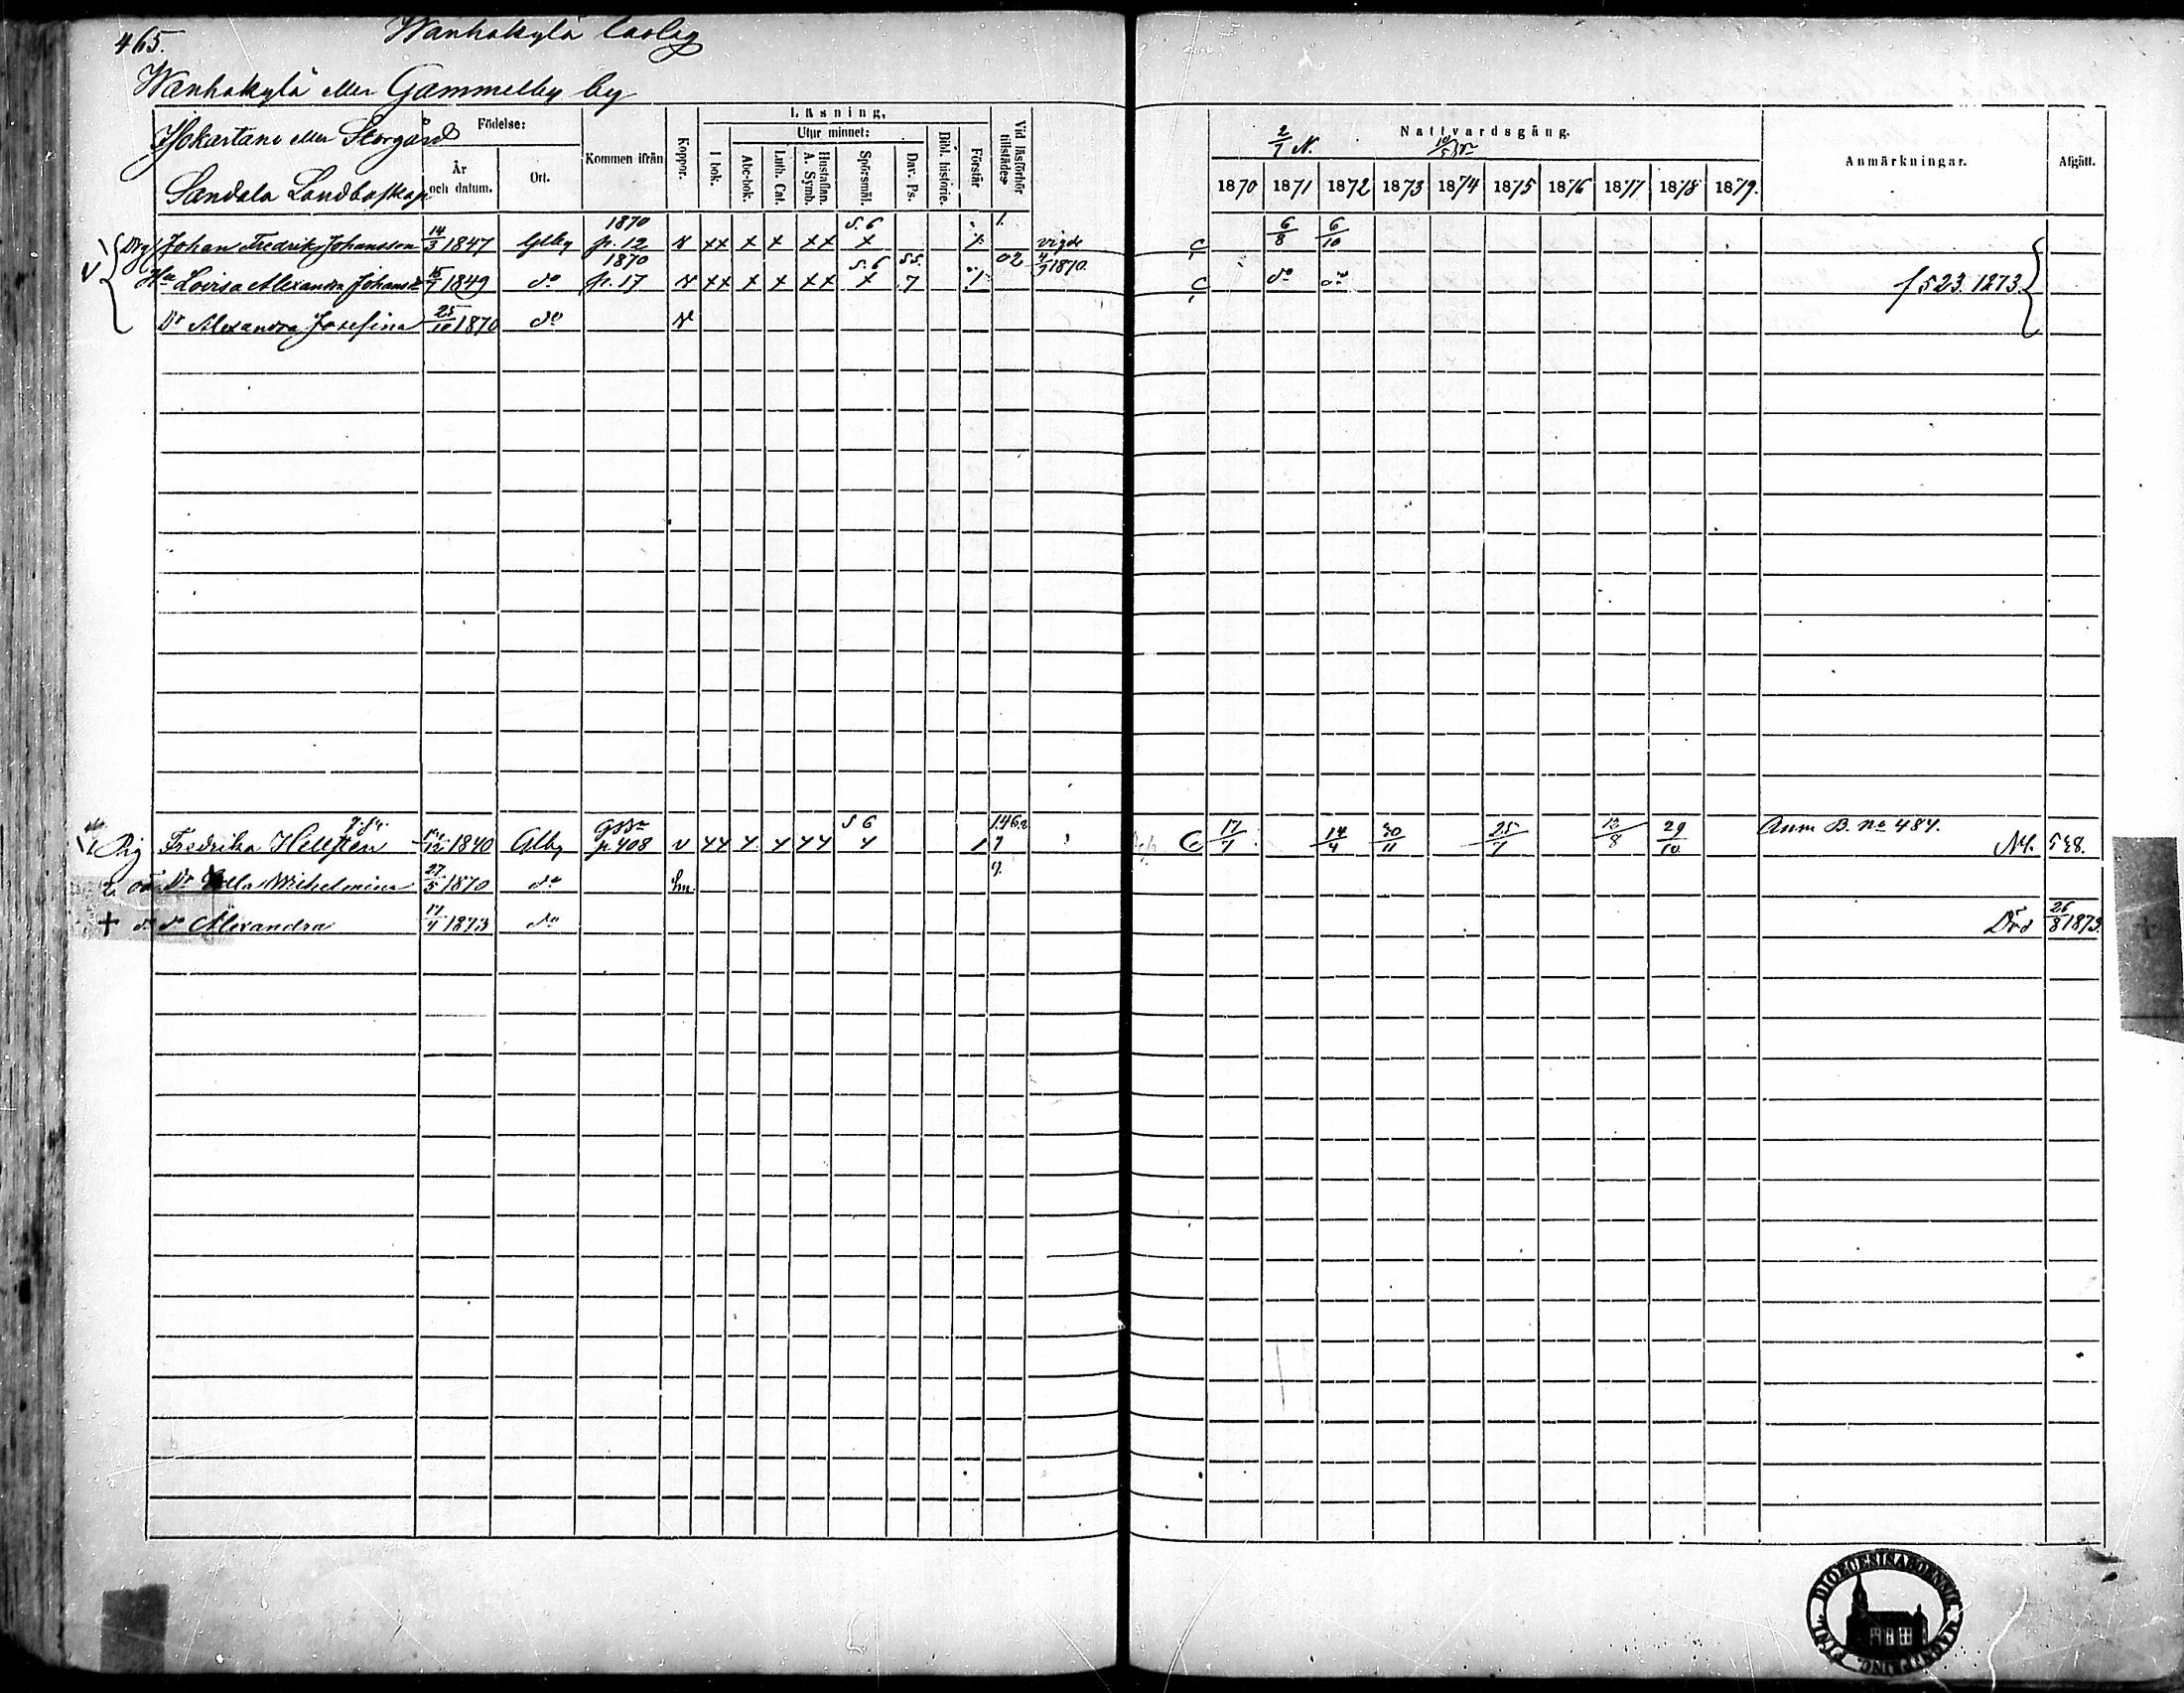 465. Wanhakylä laslag
Wanhakylä eller Gammelby by
Isokartano eller Storgård
Sandala Landbofskap
Födelse:
År och datum.
Ort.
Kommen ifrån
Koppor.
Läsning.
I bok.
Utur minnet:
Abc-bok.
Luth. Cat.
Hustaflan. A. Symb.
Spörsmål.
Dav. Ps.
Bibl. historie.
Förstår
Vid läsförhör tillstädes
Nattvardsgång.
2/1 N.
1870 1871 1872 1873 1874 1875 1876 1877 1878 1879.
Anmärkningar.
Afgått.
Drg Johan Fredrik Johansson 14/3 1847 Glby 1870 p. 12 v xx x x xx S. 6 x 1. vigde C 6/8 6/10
Hu Lovisa Alexandra Johansd 1849 do 1870 p. 17 v xx x x xx S. 6 x 5.5. 7 02 4/9 1870. C do do f 523. 1873.
Dr Alexandra Josefina 25/10 1870 do v
Pig Fredrika Hellsten 12 1840 Glby p 408 v xx x x xx S 6 x 1 1.4.6.2 7 C 17/7 14/4 30/11 25/7 12/8 29/10 Anm B. No 484. N4. 538.
oä Dr Ulla Wilhelmina 27/5 1870 do 7.
+ do do Alexandra 17/4 1873 do Död 26/8 1873.